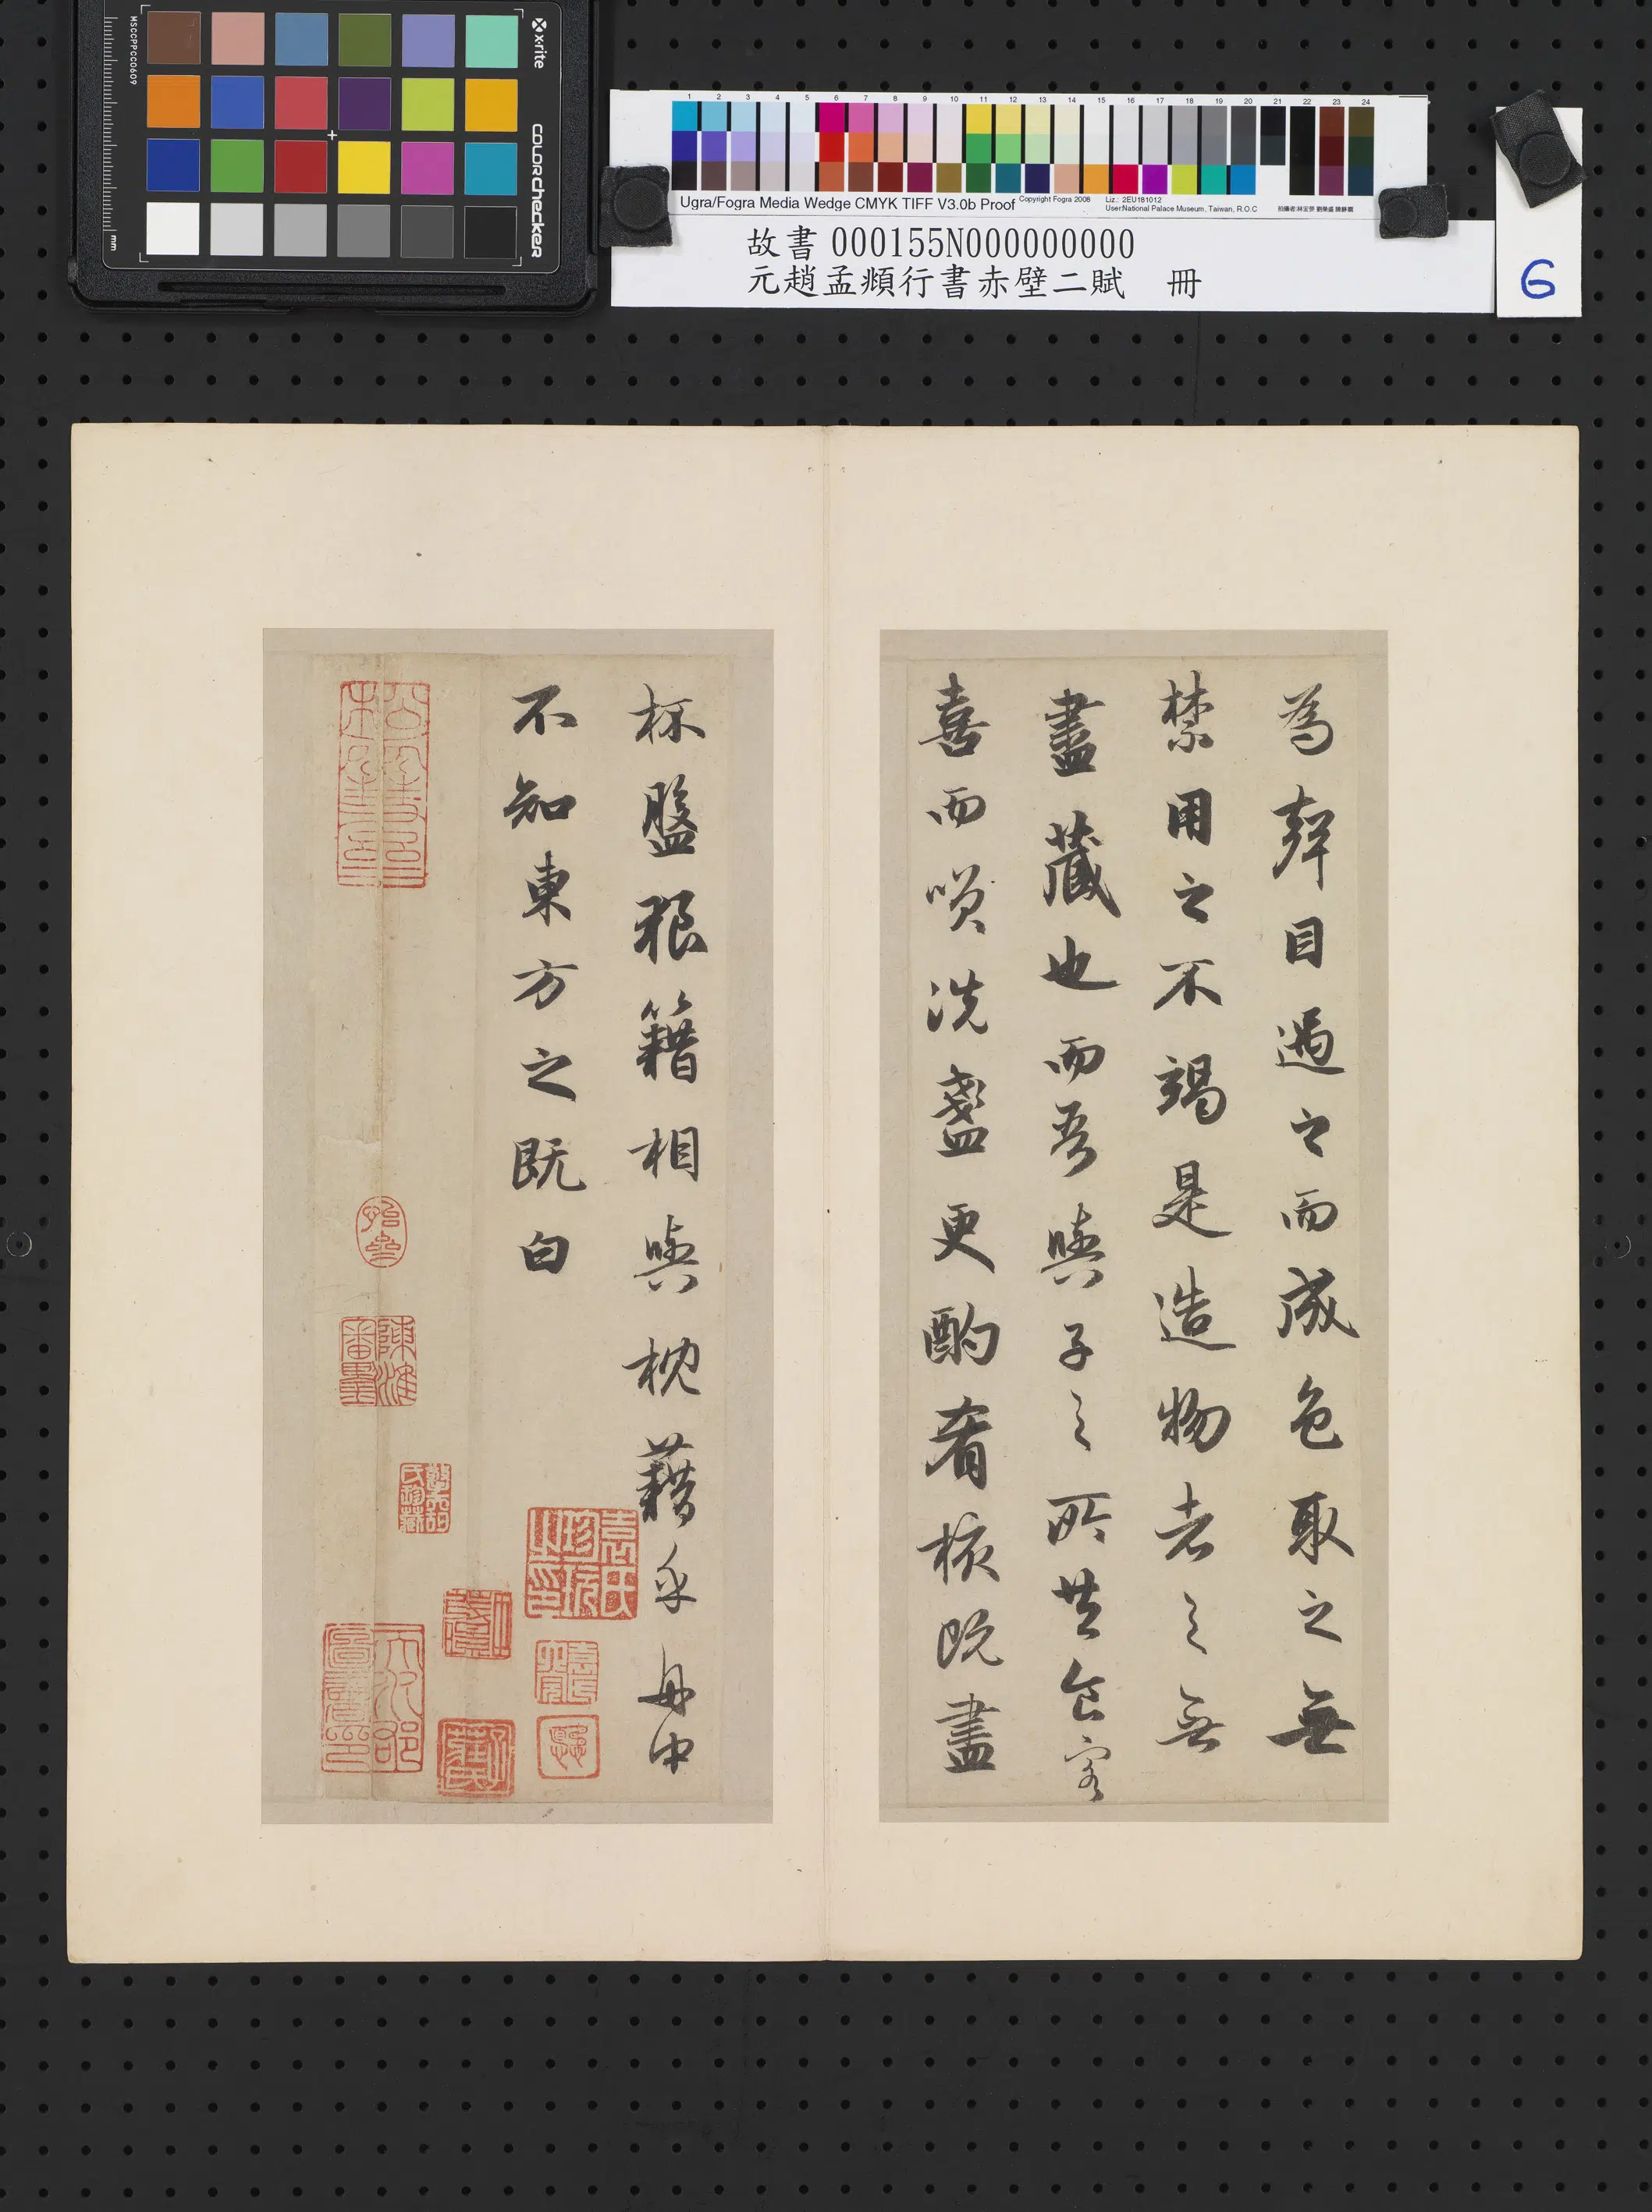 MSCCPPCC0609
x-rite
colorchecker
mm
1 2 3 4 5 6 7 8 9 10 11 12 13 14 15 16 17 18 19 20 21 22 23 24
Ugra/Fogra Media Wedge CMYK TIFF V3.0b Proof
Copyright Fogra 2008
Liz.: 2EU181012
User:National Palace Museum, Taiwan, R.O.C
故書 000155N000000000
元趙孟頫行書赤壁二賦 冊
6
為聲目遇之而成色取之無
禁用之不竭是造物者之無
盡藏也而吾與子之所共食客
喜而笑洗盞更酌肴核既盡
杯盤狼籍相與枕藉乎舟中
不知東方之既白
袁氏珍玩之印
陳淮審墨